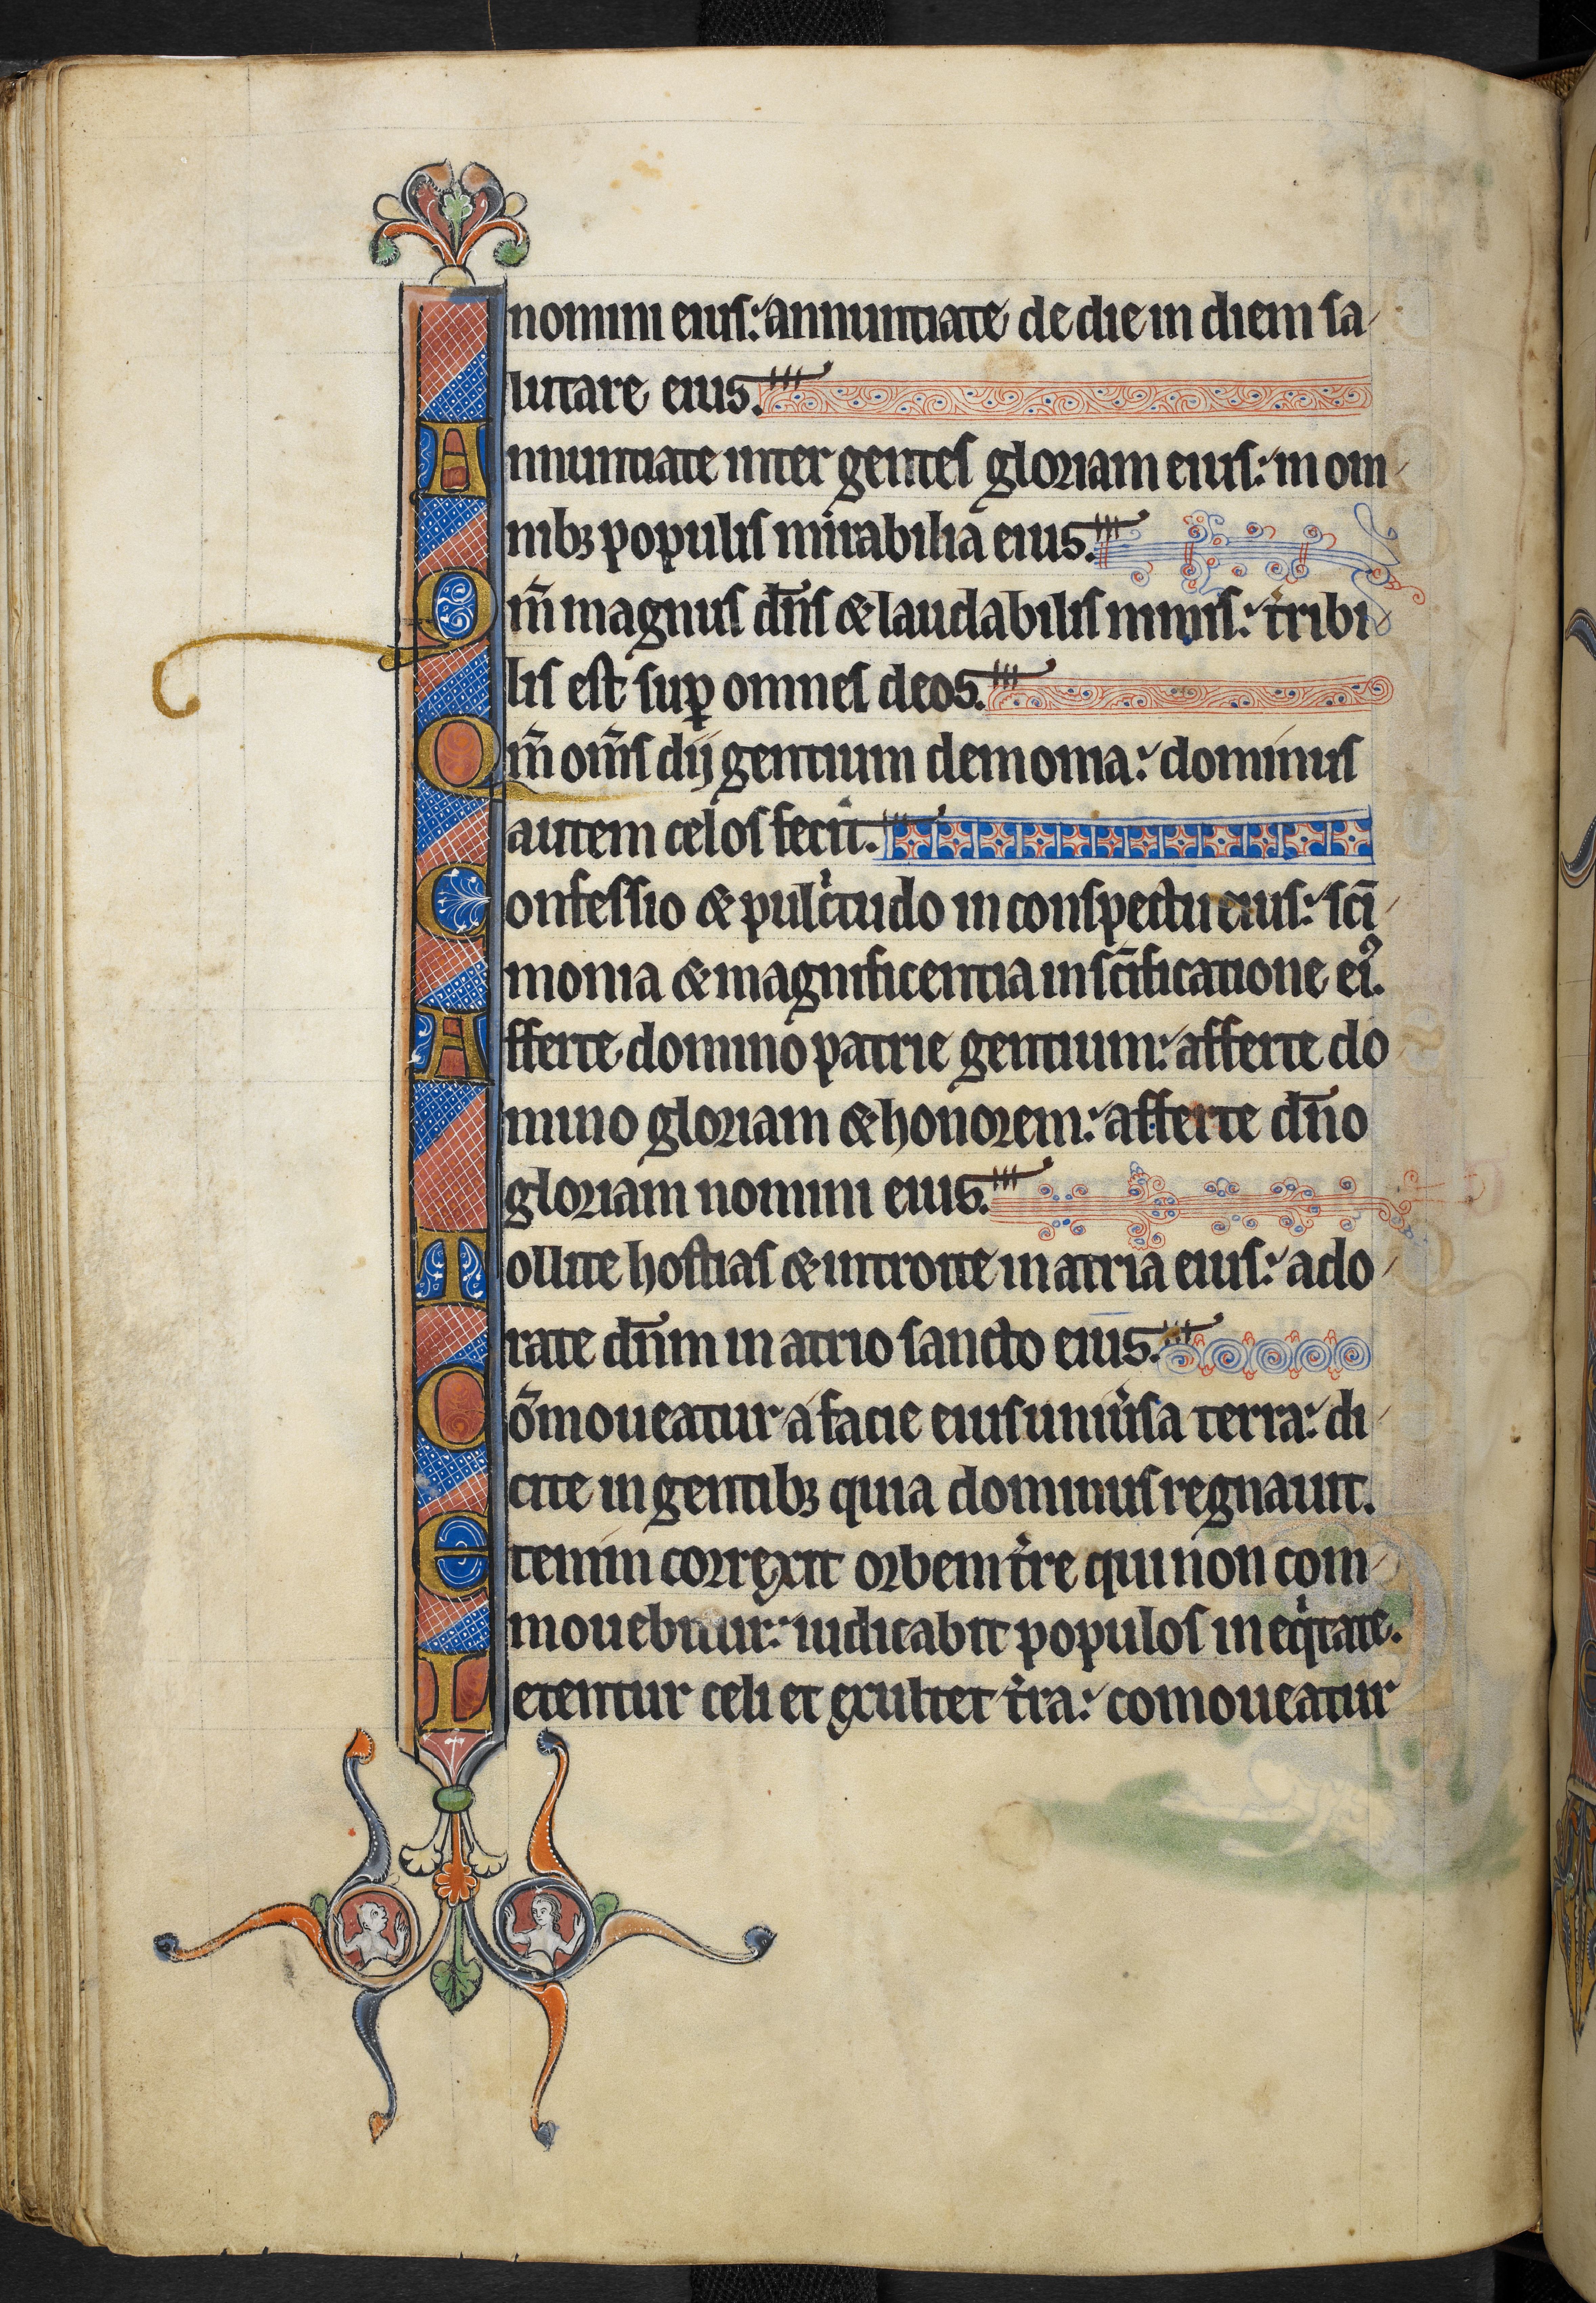 nomini eius: annuntiate de die in diem sa
lutare eius.
Annuntiate inter gentes gloriam eius: in om
nibꝫ populis mirabilia eius.
Qm̄ magnus dn̄s & laudabilis nimis: t̉ribi
lis est suꝑ omnes deos.
Qm̄ om̄s dij gentium demonia: dominus
autem celos fecit.
Confessio & pulc̉tudo in conspectu eius: sc̄i
monia & magnificentia in sc̄ificatione ei᾿.
Afferte domino patrie gentium: afferte do
mino gloriam & honorem: afferte dn̄o
gloriam nomini eius.
Tollite hostias & introite in atria eius: ado
rate dn̄m in atrio sancto eius.
Cōmoueatur a facie eius uniủsa terra: di
cite in gentibꝫ quia dominus regnauit.
Etenim correxit orbem t̉re qui non com
mouebitur: iudicabit populos in eqͥtate.
Letentur celi et exultet t̉ra: comoueatur